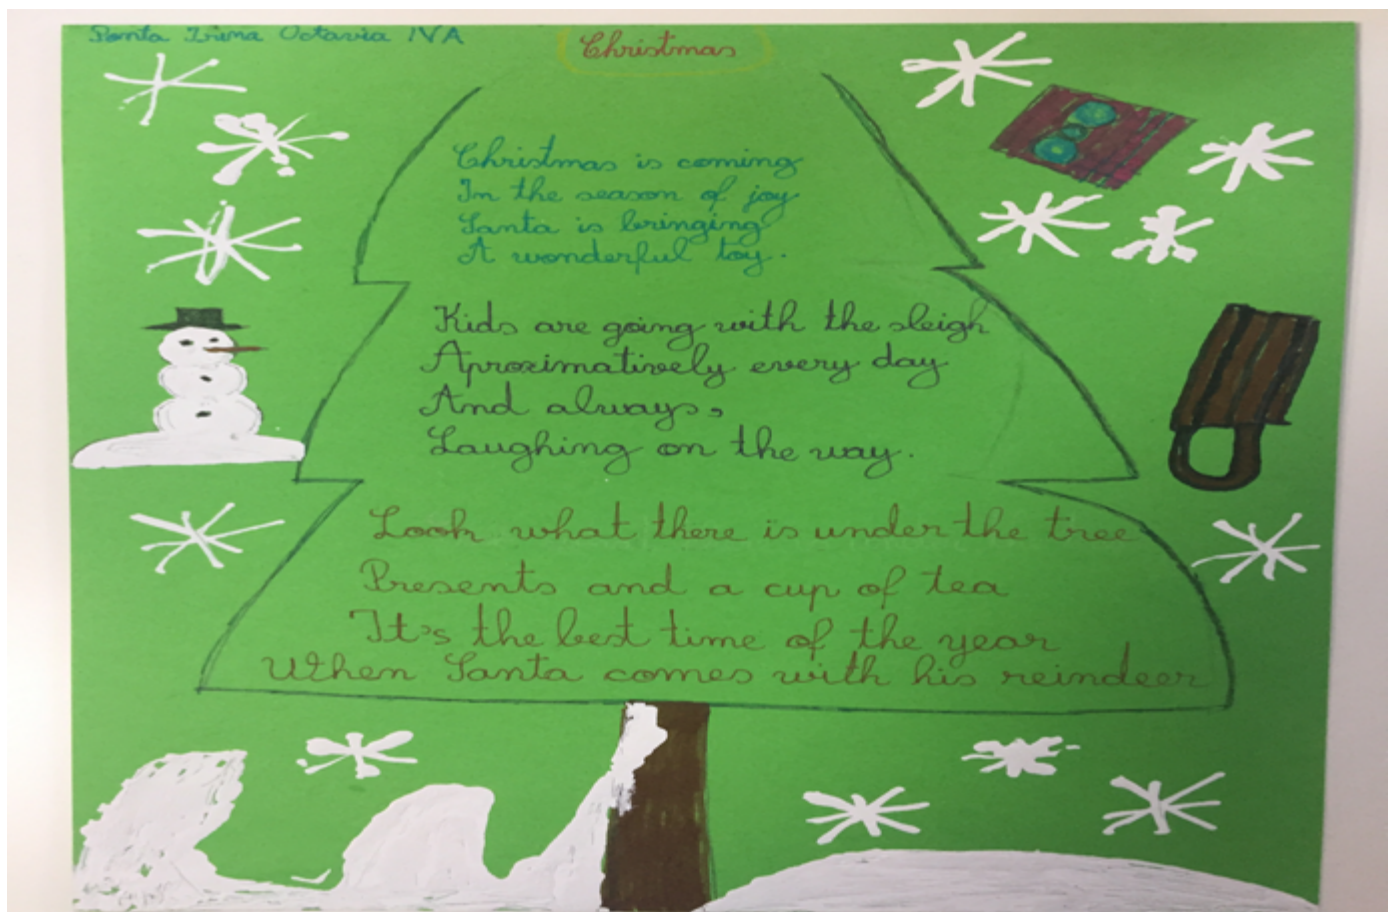 Ponta Irina Octavia IVA
Christmas
Christmas is coming
In the season of joy
Santa is bringing
A wonderful toy.
Kids are going with the sleigh
Aproximatively every day
And always,
Laughing on the way.
Look what there is under the tree
Presents and a cup of tea
It's the best time of the year
When Santa comes with his reindeer